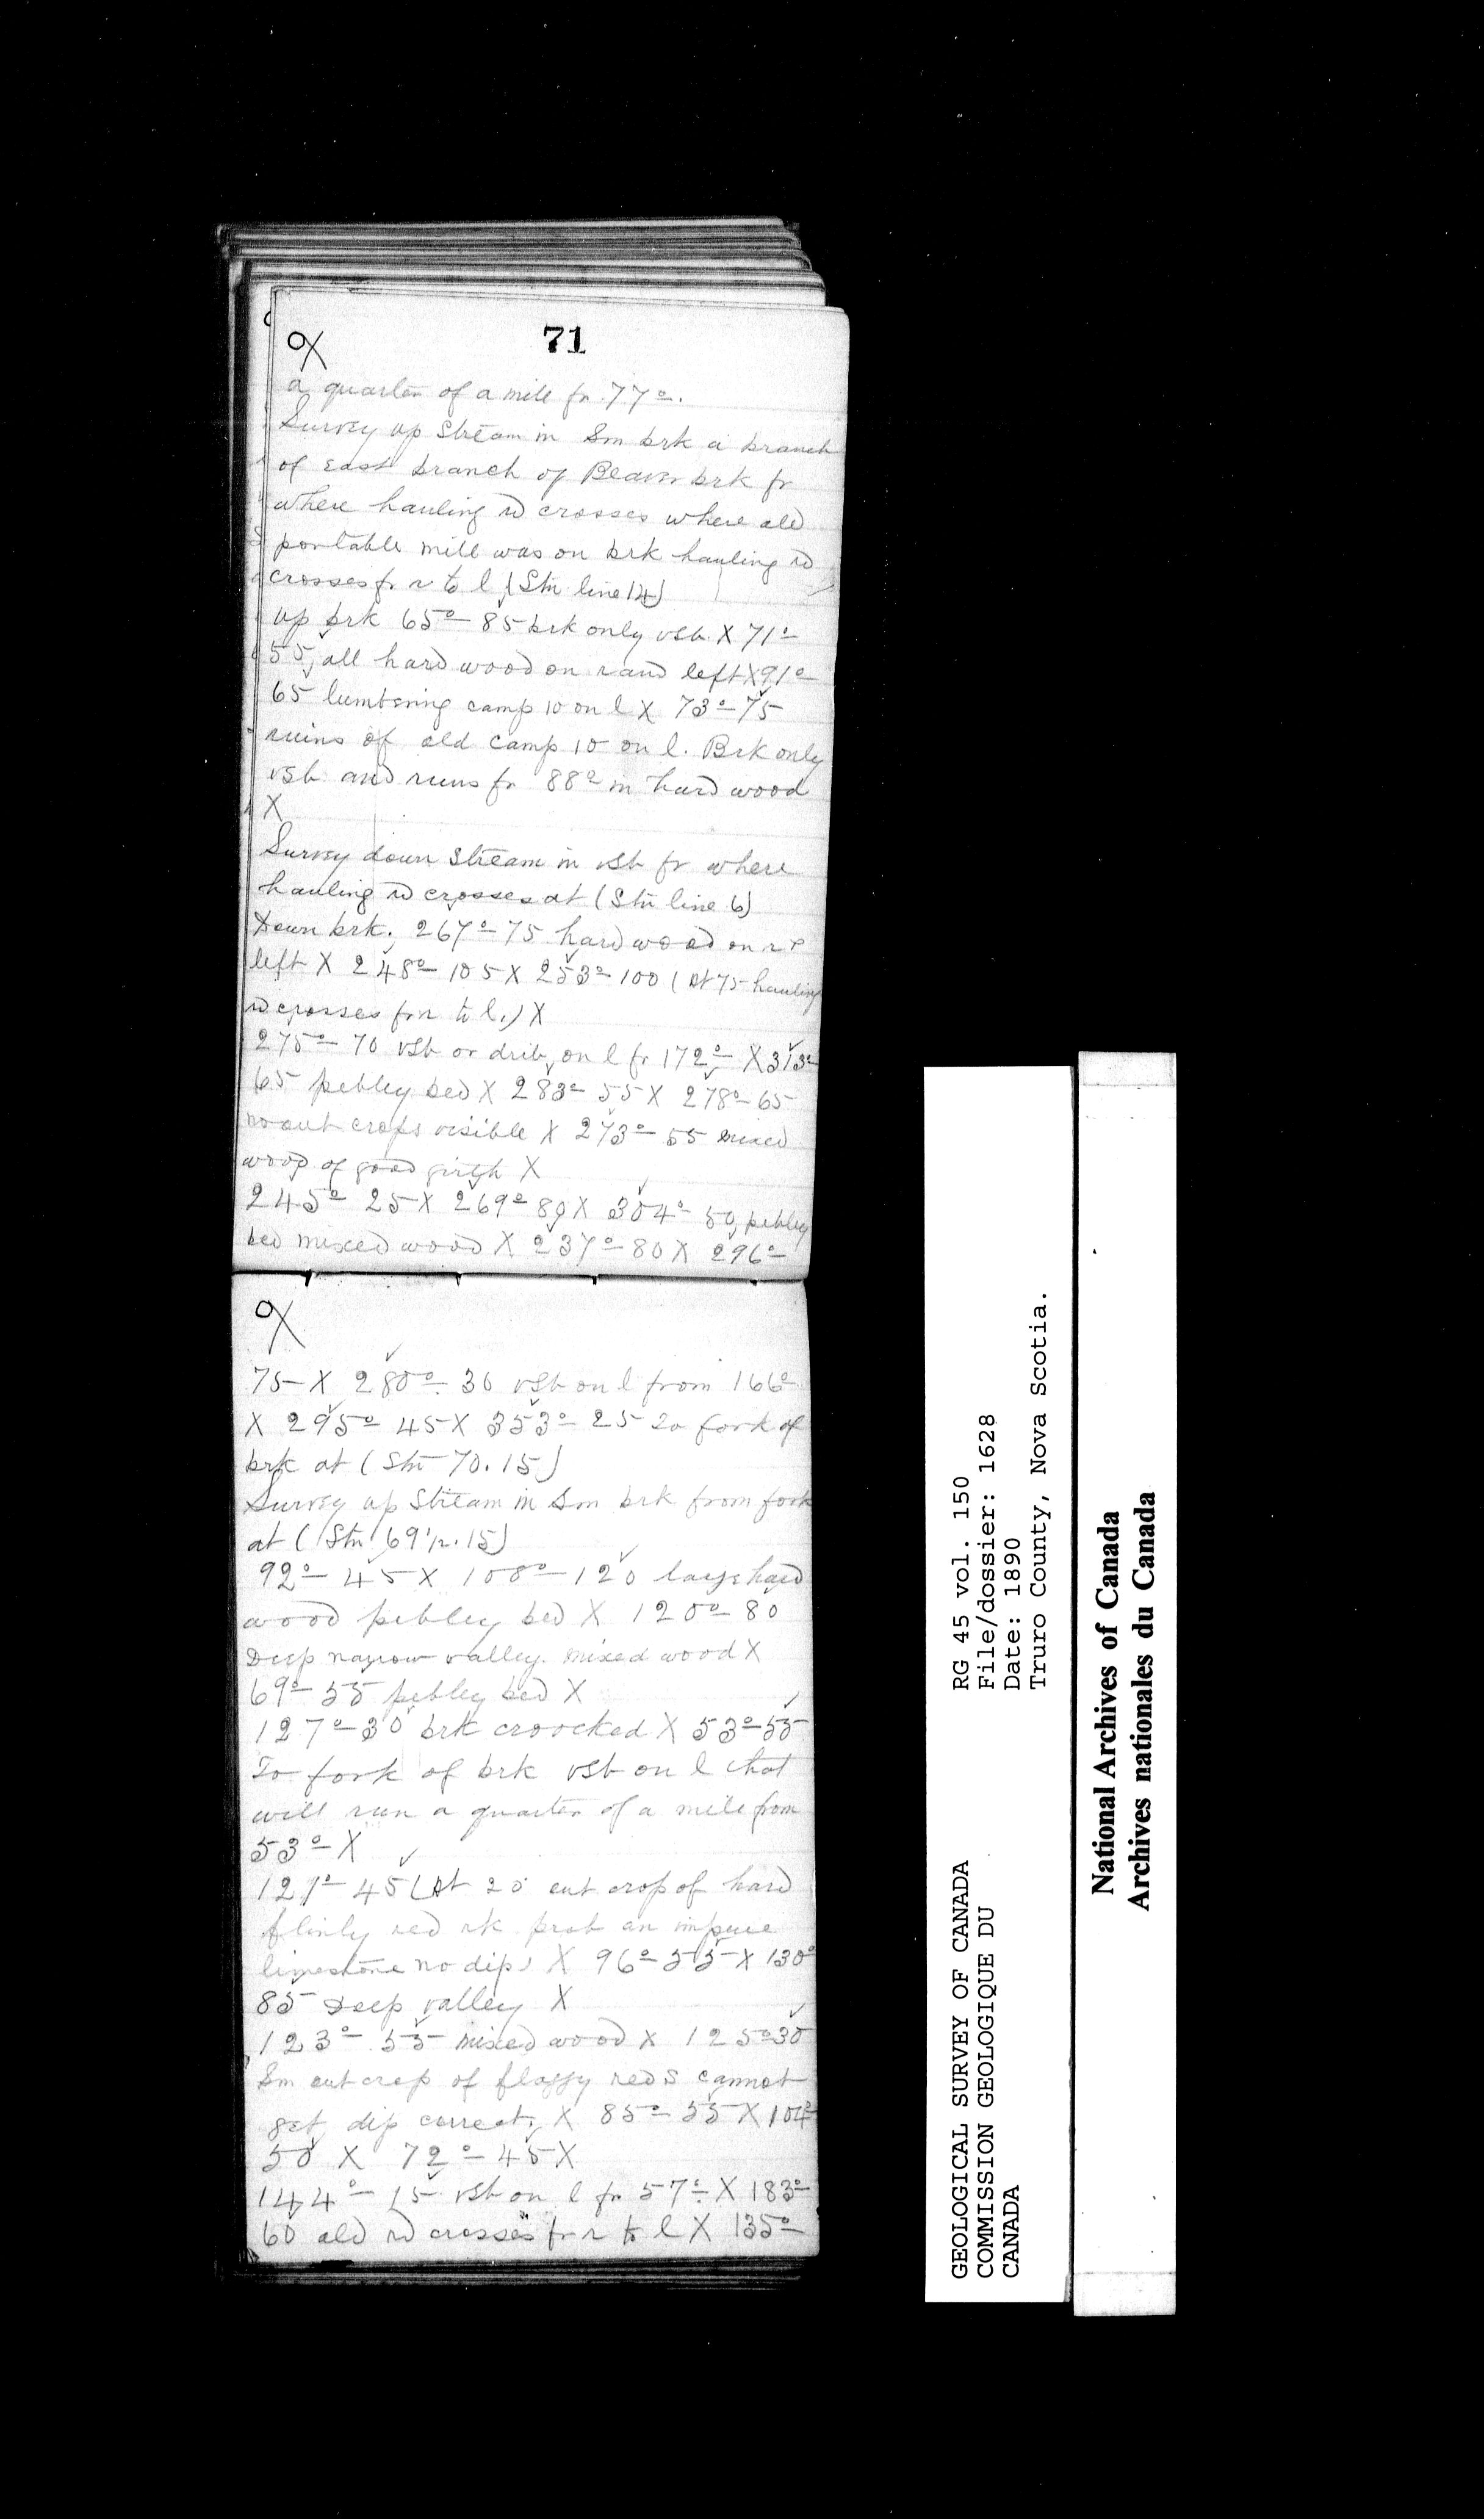 71
a quarter of a mile fr 77°.
Survey up Stream in Sm brk a branch
of East branch of Beaver brk fr
where hauling rd crosses where old
portable mill was on brk hauling rd
crosses fr r to l (Stn line 14)
up brk 65°- 85 brk only vsb. X 71°-
55, all hard wood on r and left X 91°-
65 lumbering camp 10 on l X 73°- 75
ruins of old camp 10 on l. Brk only
vsb and runs fr 88° in hard wood
X
Survey down Stream in vsb fr where
hauling rd crosses at (Stn line 6)
Down brk. 267°- 75 hard wood on r &
left X 248°- 105 X 253°- 100 (At 75 hauling
rd crosses fr r to l.) X
275°- 70 vsb or drib, on l fr 172°- X 313°-
65 pebbley bed X 283°- 55 X 278°- 65
no out crops visible X 273°- 55 mixed
wood of good girth X
245°- 25 X 269°- 80 X 304°- 50, pebbley
bed mixed wood X 237°- 80 X 296°-
75 X 280°- 30 vsb on l from 166°-
X 295°- 45 X 353°- 25 To fork of
brk at (Stn 70.15)
Survey up Stream in Sm brk from fork
at (Stn 69 1/2.15)
92°- 45 X 108°- 120 large hard
wood pebbley bed X 120°- 80
Deep narrow valley. mixed wood X
69°- 55 pebbley bed X
127°- 30 brk croocked X 53°- 55
To fork of brk vsb on l that
will run a quarter of a mile from
53°- X
121°- 45 (At 20 out crop of hard
flinly red rk prob an impure
limestone no dip) X 96°- 55 X 130°
85 Deep valley X
123°- 55 mixed wood X 125°- 30
Sm out crop of flaggy red S cannot
get dip correct, X 85°- 55 X 104°-
50 X 72°- 45 X
144°- 15 vsb on l fr 57°- X 183°-
60 old rd crosses fr r to l X 135°-
GEOLOGICAL SURVEY OF CANADA
COMMISSION GEOLOGIQUE DU
CANADA
RG 45 vol. 150
File/dossier: 1628
Date: 1890
Truro County, Nova Scotia.
National Archives of Canada
Archives nationales du Canada